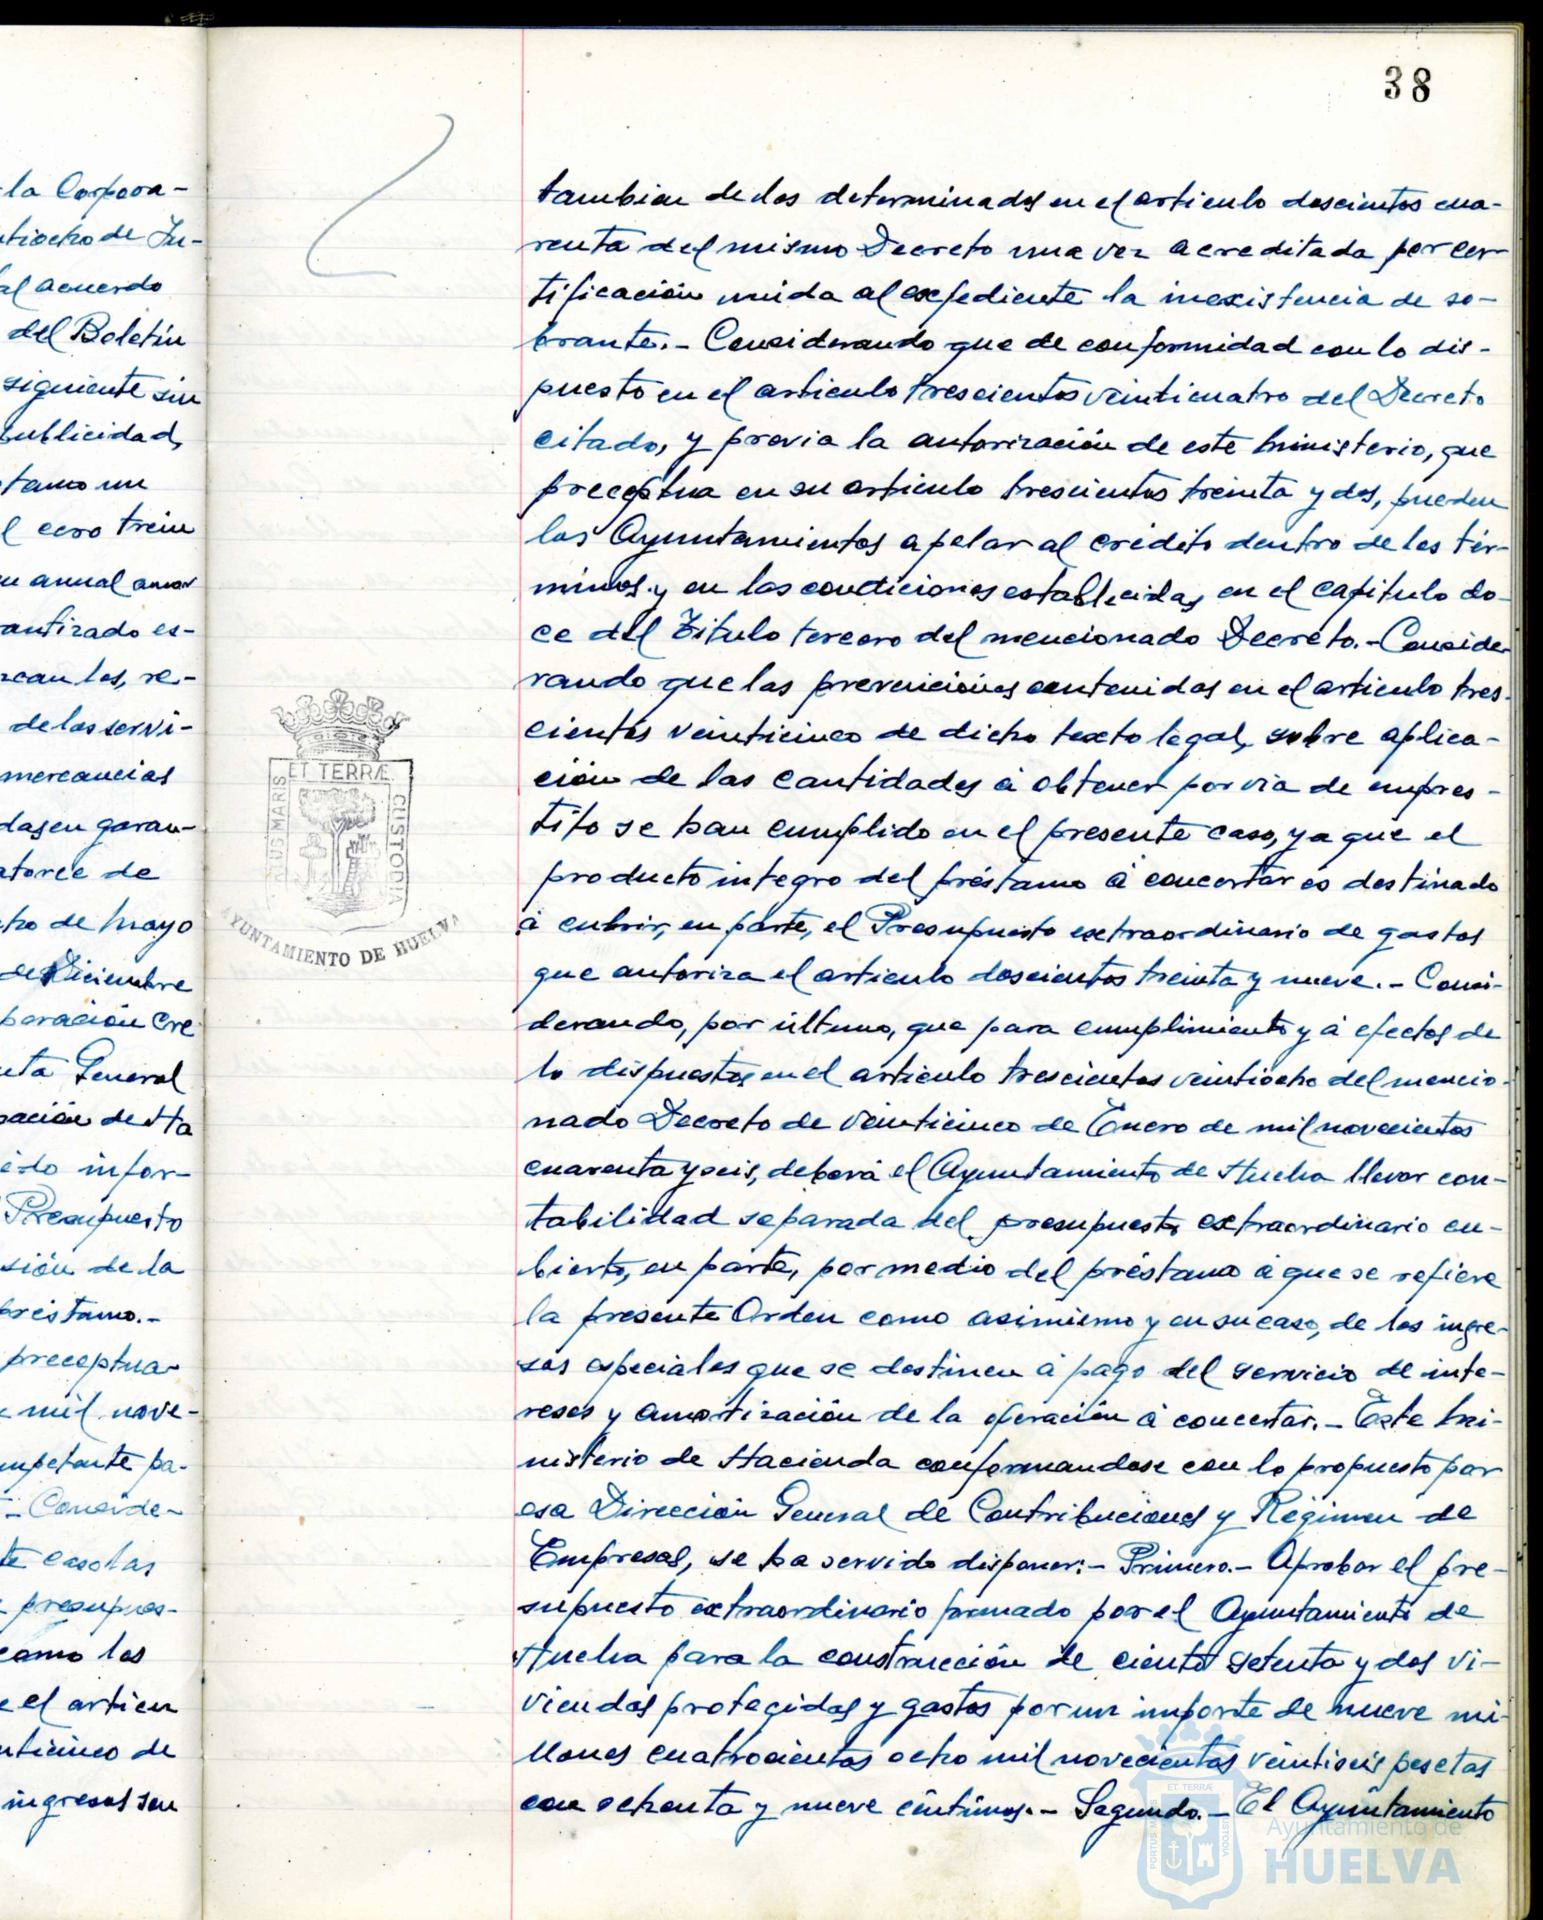 38
la Corpora-
tiocho de Ju-
al acuerdo
del Boletin
siguiente sin
publicidad,
tamo un
l cero trein
u anual amor
antizado es-
rcan los, re-
de los servi-
mercancias
das en garan-
atorce de
cho de Mayo
de Diciembre
poración cre
nta General
pación de Ha
ido infor-
Presupuesto
sión de la
préstamo.-
preceptua
e mil nove-
mpetente pa-
- Conside-
te caso las
presupues-
como los
e el articu
nticinco de
ingresos son
tambien de los determinados en el articulo doscientos cua-
renta del mismo Decreto una vez acreditada por cer-
tificación unida al expediente la inexistencia de so-
brante.- Considerando que de conformidad con lo dis-
puesto en el articulo trescientos veinticuatro del Decreto
citado, y previa la autorización de este Ministerio, que
preceptua en su articulo trescientos treinta y dos, pueden
los Ayuntamientos apelar al crédito dentro de los tér-
minos y en las condiciones establecidas en el capitulo do-
ce del Titulo tercero del mencionado Decreto.- Conside-
rando que las prevenciones contenidas en el articulo tres-
cientos veinticinco de dicho texto legal, sobre aplica-
ción de las cantidades á obtener por via de empres-
tito se han cumplido en el presente caso, ya que el
producto integro del préstamo á concertar es destinado
á cubrir, en parte, el Presupuesto extraordinario de gastos
que autoriza el articulo doscientos treinta y nueve.- Consi-
derando, por último, que para cumplimiento y á efectos de
lo dispuesto en el articulo trescientos veintiocho del mencio-
nado Decreto de veinticinco de Enero de mil novecientos
cuarenta y seis, deberá el Ayuntamiento de Huelva llevar con-
tabilidad separada del presupuesto extraordinario cu-
bierto, en parte, por medio del préstamo á que se refiere
la presente Orden como asimismo y en su caso, de los ingre-
sos especiales que se destinen á pago del servicio de inte-
reses y amortización de la operación á concertar.- Este Mi-
nisterio de Hacienda conformandose con lo propuesto por
esa Dirección General de Contribuciones y Régimen de
Empresas, se ha servido disponer:- Primero.- Aprobar el pre-
supuesto extraordinario formado por el Ayuntamiento de
Huelva para la construcción de ciento setenta y dos vi-
viendas protegidas y gastos por un importe de nueve mi-
llones cuatrocientos ocho mil novecientos veintiseis pesetas
con ochenta y nueve céntimos.- Segundo.- El Ayuntamiento
PORTUS MARIS ET TERRÆ CUSTODIA
AYUNTAMIENTO DE HUELVA
PORTUS MARIS ET TERRÆ CUSTODIA
Ayuntamiento de
HUELVA